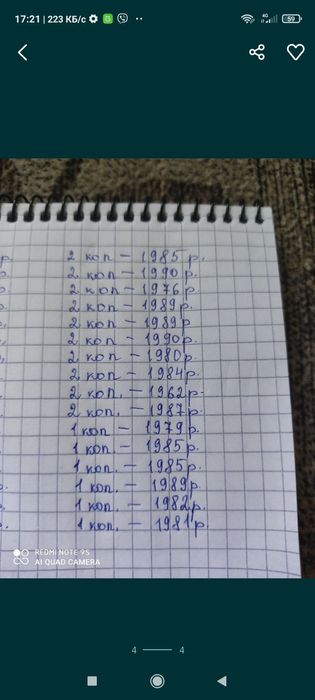 17:21 | 223 КБ/с
4G
59
2 коп – 1985 р.
2 коп – 1990 р.
2 коп – 1976 р.
2 коп – 1989 р.
2 коп – 1989 р
2 коп – 1990 р.
2 коп – 1980 р.
2 коп – 1984 р.
2 коп. – 1962 р.
2 коп. – 1987 р.
1 коп – 1979 р.
1 коп. – 1985 р.
1 коп. – 1985 р.
1 коп. – 1989 р.
1 коп. – 1982 р.
1 коп. – 1981 р.
REDMI NOTE 9S
AI QUAD CAMERA
4 — 4